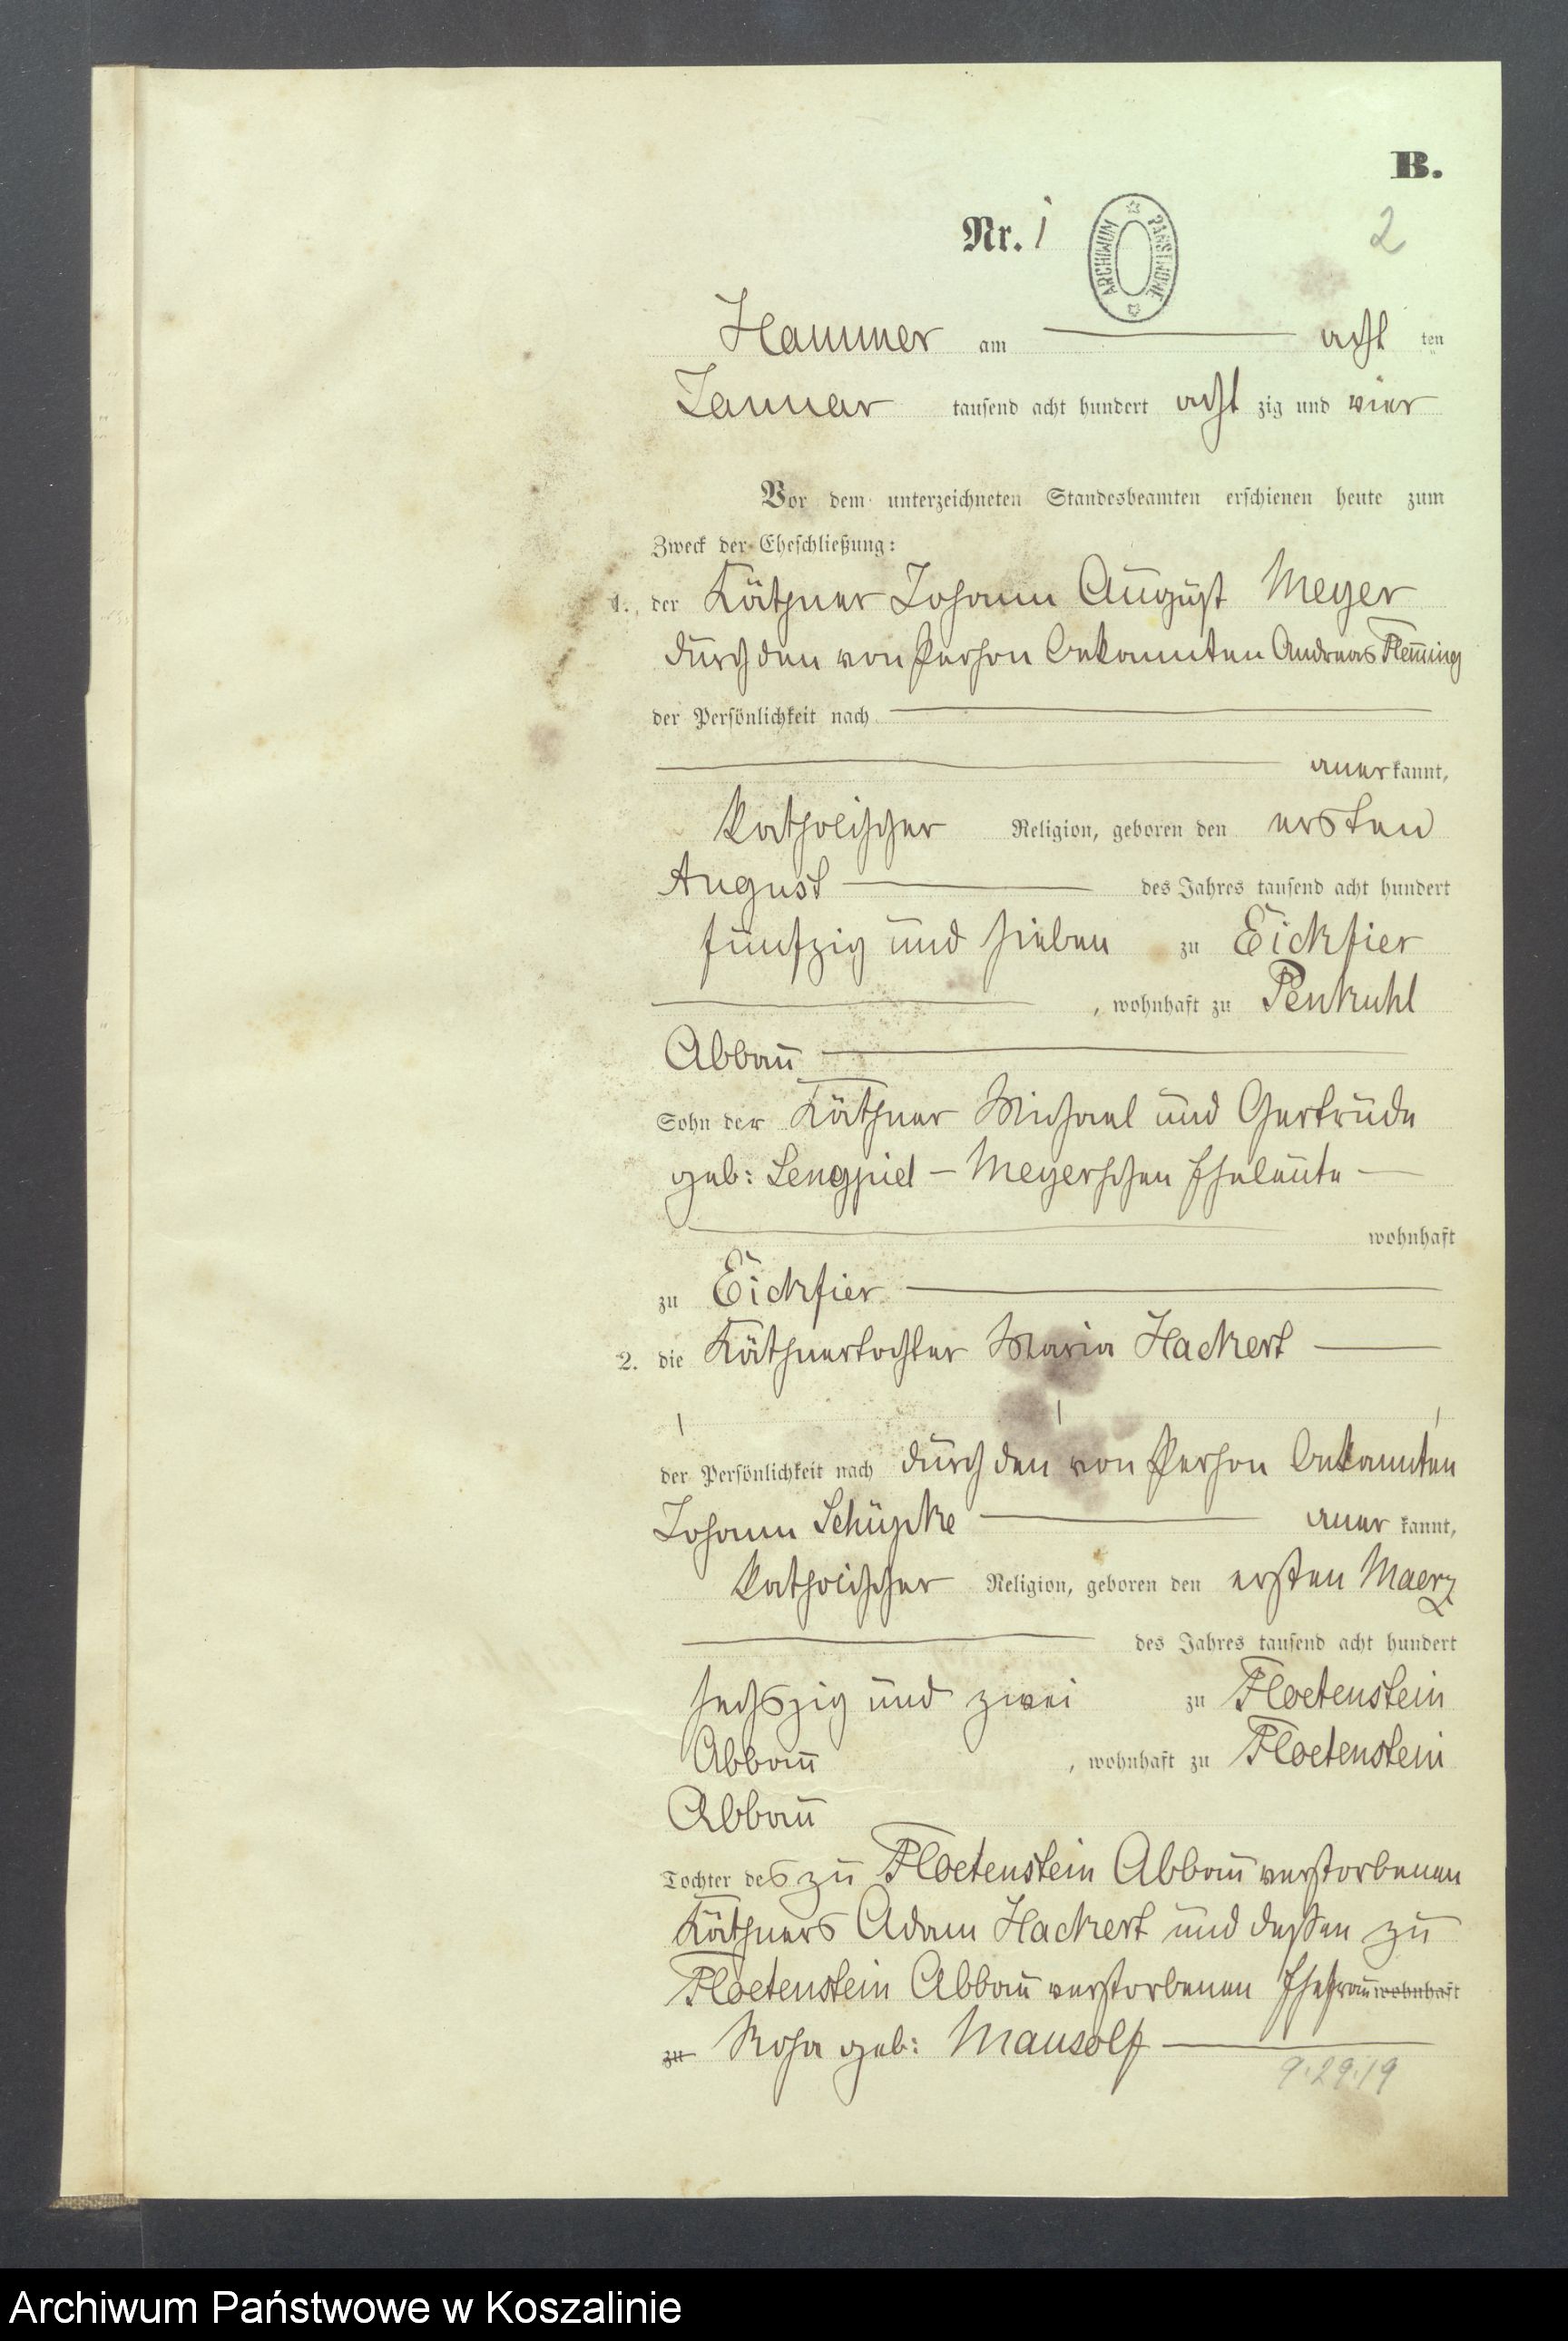 B.
Nr. 1
2
ARCHIWUM PAŃSTWOWE
Hammer am acht ten
Januar tausend acht hundert acht zig und vier
Vor dem unterzeichneten Standesbeamten erschienen heute zum
Zweck der Eheschließung:
1. der Käthner Johann August Meyer
durch den von Person bekannten Andreas Flem̄ing
der Persönlichkeit nach
aner kannt,
katholischer Religion, geboren den ersten
August des Jahres tausend acht hundert
fünfzig und sieben zu Eickfier
, wohnhaft zu Penkuhl
Abbau
Sohn der Käthner Michael und Gertrude
geb: Lengpiel - Meyerschen Eheleute -
wohnhaft
zu Eickfier
2. die Käthnertochter Maria Hackert
der Persönlichkeit nach durch den von Person bekannten
Johann Schüpke aner kannt,
katholischer Religion, geboren den ersten Maerz
des Jahres tausend acht hundert
sechszig und zwei zu Floetenstein
Abbau , wohnhaft zu Floetenstein
Abbau
Tochter des zu Floetenstein Abbau verstorbenen
Käthners Adam Hackert und dessen zu
Floetenstein Abbau verstorbenen Ehefrau wohnhaft
zu Rosa geb: Mausolf
9.29.19
Archiwum Państwowe w Koszalinie